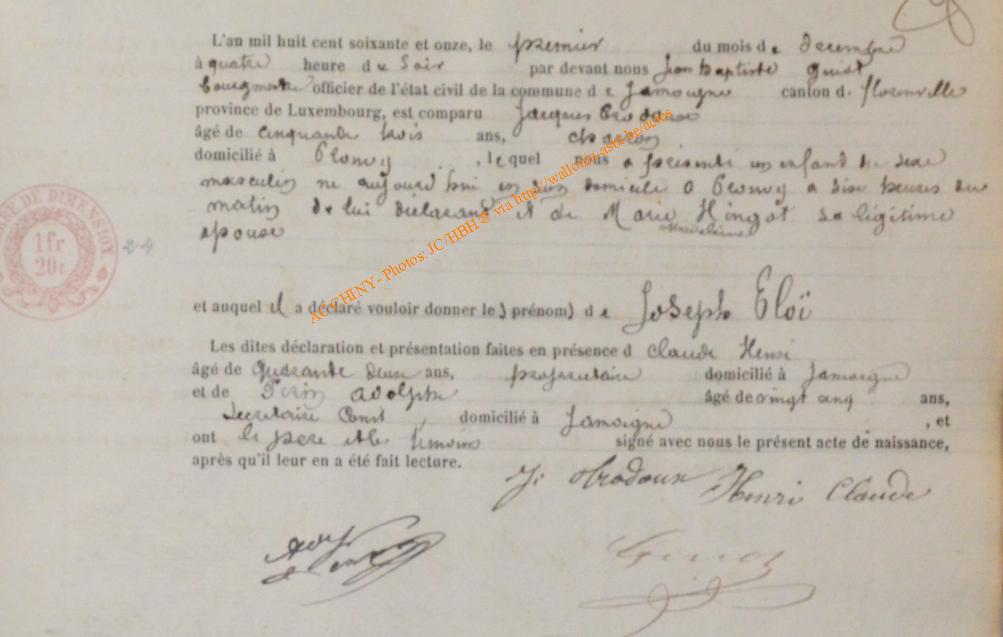 L'an mil huit cent soixante et onze, le premier du mois de decembre
à quatre heure du Soir par devant nous Jean Baptiste
bourgmestre officier de l'état civil de la commune de Jamoigne canton de florenville
province de Luxembourg, est comparu Jacques
âgé de cinquante trois ans, charron
domicilié à , lequel nous a présenté un enfant du sexe
masculin né aujourd'hui en son domicile a a dix heures du
matin de lui déclarant et de Marie Hingot sa légitime
Madeleine
epouse
DE DIMENSION
1fr
20c
24
et auquel il a déclaré vouloir donner le) prénom) de Joseph Eloï
Les dites déclaration et présentation faites en présence d Claude Henri
âgé de quarante deux ans, propriétaire domicilié à Jamoigne
et de adolphe âgé de vingt cinq ans,
Secrétaire Coml, domicilié à Jamoigne , et
ont le père et les témoins signé avec nous le présent acte de naissance,
après qu'il leur en a été fait lecture.
J. Henri Claude
AC CHINY - Photos: JC/HBH® via http://wallonia-asbl.be/actes